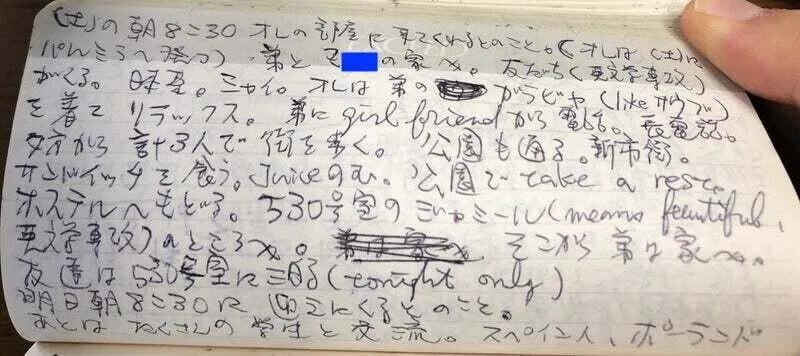 (土)の朝8:30 オレの部屋に来てくれるとのこと。(オレは(土)に
パルミラへ発つ) 弟と の家へ。友だち(英文学専攻)
がくる。昼食。ミャイ。オレは弟の ガラビヤ(likeサウブ)
を着てリラックス。弟にgirl friendから電話。長電話。
夕方から計3人で街を歩く。公園も通る。新市街。
サンドイッチを食う。Juiceのむ。公園でtake a rest。
ホステルへもどる。530号室のジャミール(means beautiful,
英文学専攻)のところへ。 そこから弟は家へ。
友達は530号室に泊る(tonight only)
明日朝8:30に とのこと。
あとはたくさんの学生と交流。スペイン人、ポーランド